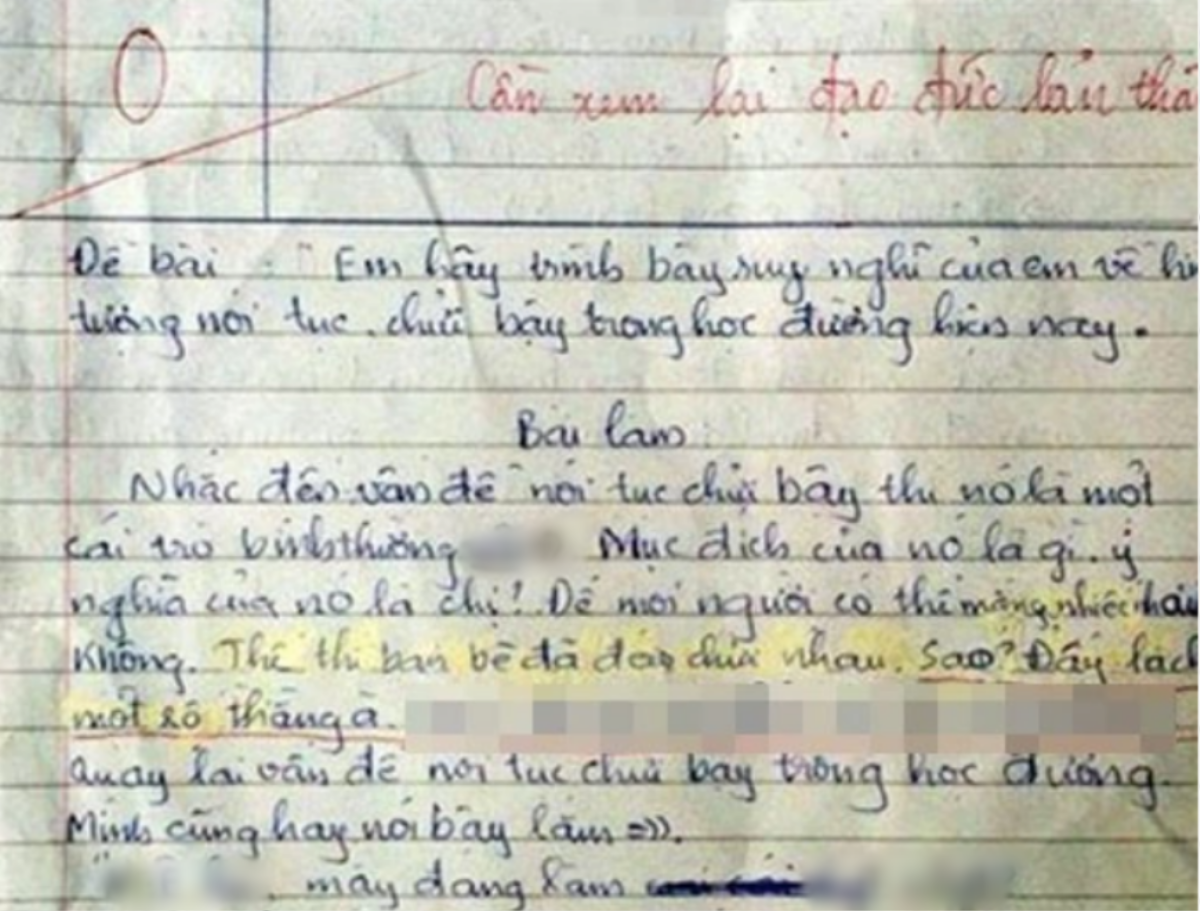 0
Cần xem lại đạo đức bản thâ
Đề bài : " Em hãy trình bày suy nghĩ của em về hi
tượng nói tục, chửi bậy trong học đường hiện nay.
Bài làm:
Nhắc đến vấn đề nói tục chửi bậy thì nó là một
cái trò bình thường Mục đích của nó là gì. ý
nghĩa của nó là chi! Để mọi người có thể mắng nhiếc hay
không. Thế thì bạn bè đã đáo chửi nhau. Sao? Đấy là
một số thằng à.
Quay lại vấn đề nói tục chửi bậy trong học đường.
Mình cũng hay nói bậy lắm =)).
mày đang làm